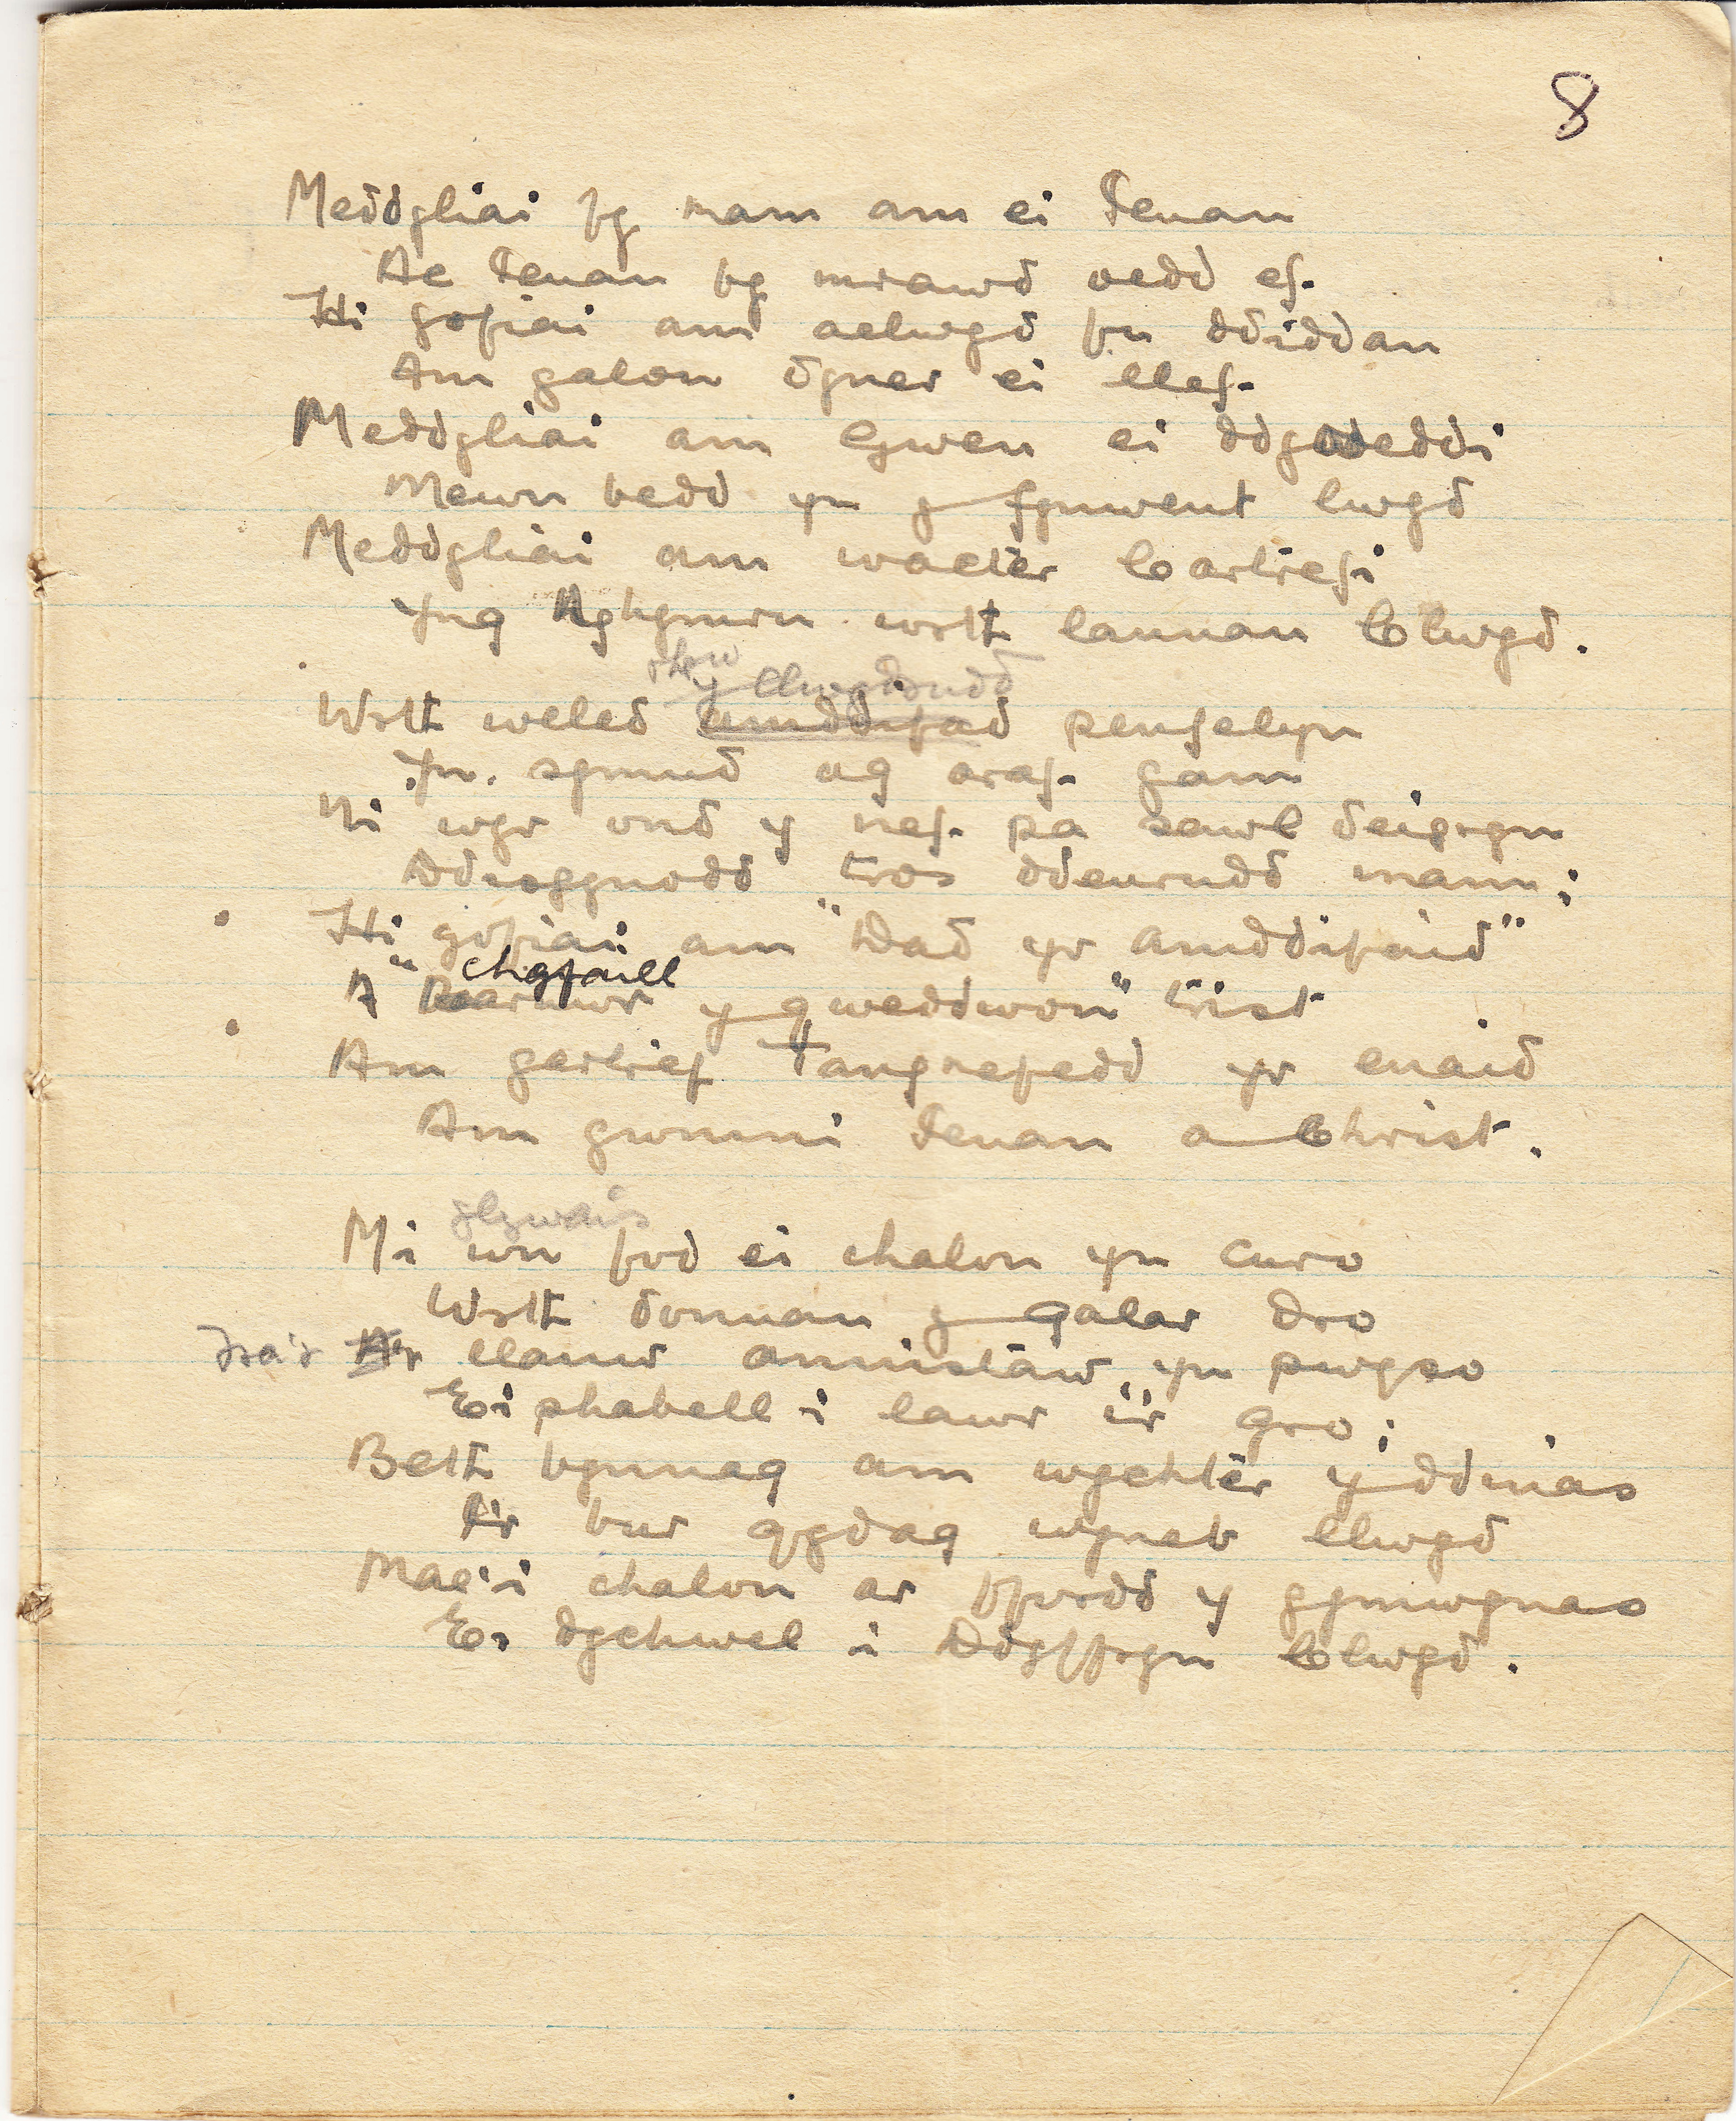 8
Meddyliai fy mam am ei Ieuan
Ac Ieuan fy mrawd oedd ef.
Hi gofiai am aelwyd fu ddiddan
Am galon dyner ei llef.
Meddyliai am Gwen ei ddyweddi
Mewn bedd yn y fynwent lwyd
Meddyliai am wacter Cartrefi
Yng Nghymru wrth lannau Clwyd.
y llwydrudd
Wrth weled amddifad penfelyn
Yn symud ag araf gam
Ni wyr ond y nef pa sawl deigryn
Ddisgynodd tros ddeurudd mam;
Hi gofiai am "Dad yr amddifaid"
chyfaill
A " Barnwr y gweddwon" trist
Am gartref Tangnefedd yr enaid
Am gwmni Ieuan a Christ.
glywais
Mi wn fod ei chalon yn curo
Wrth donnau y galar dro
Ira'r A'r llanw annistaw yn pwyso
Ei phabell i lawr i'r gro;
Beth bynnag am wychter y ddinas
A'r bur gyda wyneb llwyd
Mae'i chalon ar ffordd y gymwynas
Ei dychwel i Ddyffryn Clwyd.